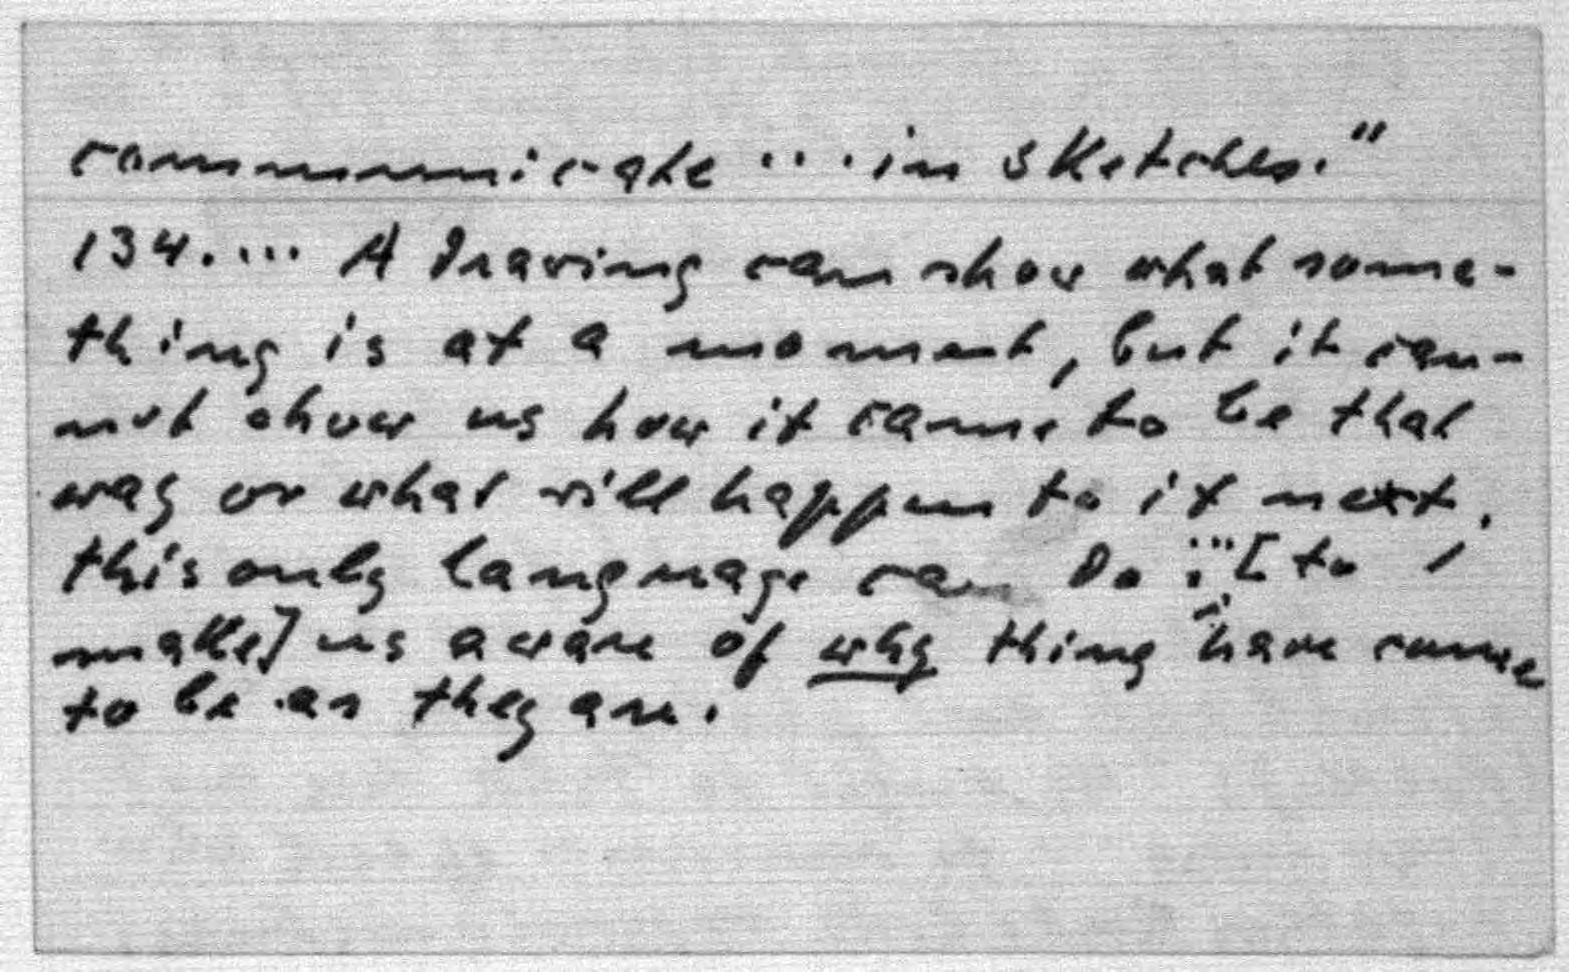 communicate ... in sketches."
134. ... A drawing can show what some-
thing is at a moment, but it can-
not show us how it came to be that
way or what will happen to it next.
this only language can do ... [to
make] us aware of why thing have come
to be as they are.